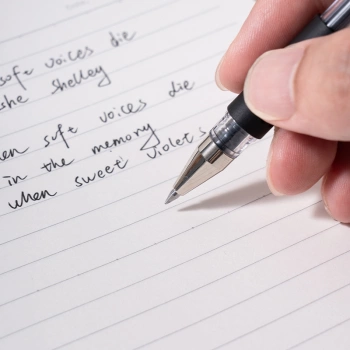 soft voices die
she Shelley
en soft voices die
in the memory
when sweet violets